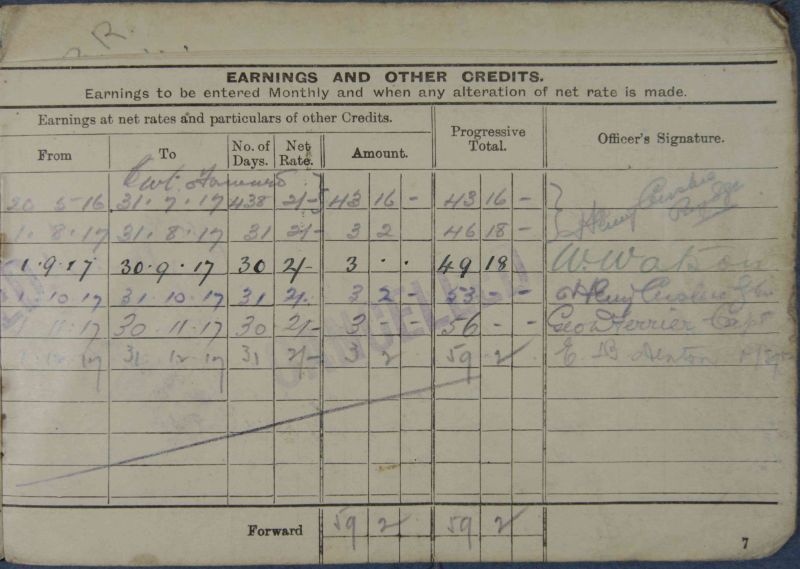 R.
EARNINGS AND OTHER CREDITS.
Earnings to be entered Monthly and when any alteration of net rate is made.
Earnings at net rates and particulars of other Credits.
Progressive Total.
Officer's Signature.
From To No. of Days. Net Rate. Amount.
20 5 16 31. 7. 17 438 2/- 43 16 - 43 16 -
1. 8. 17 31. 8. 17 31 2/- 3 2 46 18 -
1. 9. 17 30. 9. 17 30 2/- 3 . . 49 18 W. Watson
1. 10. 17 31. 10. 17 31 2/- 3 2 - 53 - -
11. 17 30. 11. 17 30 2/- 3 56 - - Geo W Ferrier Capt
12. 17 31 12. 17 31 2/- 3 2 59 2 E B Denton
CANCELLED
Forward 59 2 59 2
7